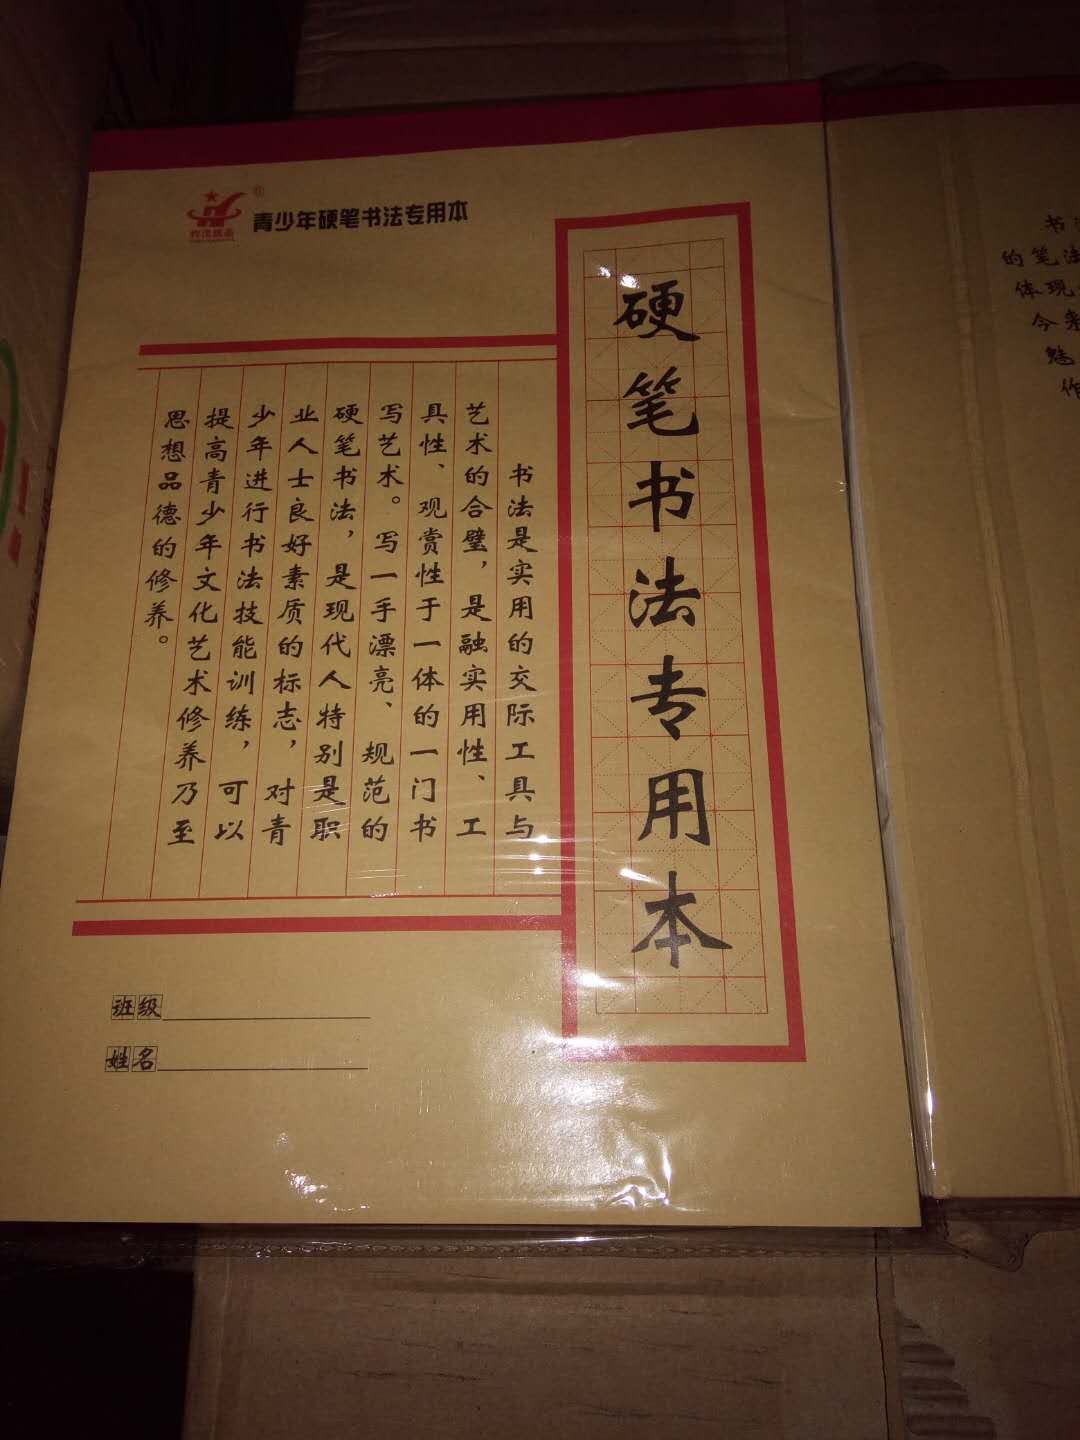 青少年硬笔书法专用本
硬笔书法专用本
书法是实用的交际工具与
艺术的合璧，是融实用性、工
具性、观赏性于一体的一门书
写艺术。写一手漂亮、规范的
硬笔书法，是现代人特别是职
业人士良好素质的标志，对青
少年进行书法技能训练，可以
提高青少年文化艺术修养乃至
思想品德的修养。
班级
姓名
书
的笔法
体现
今
魅
作